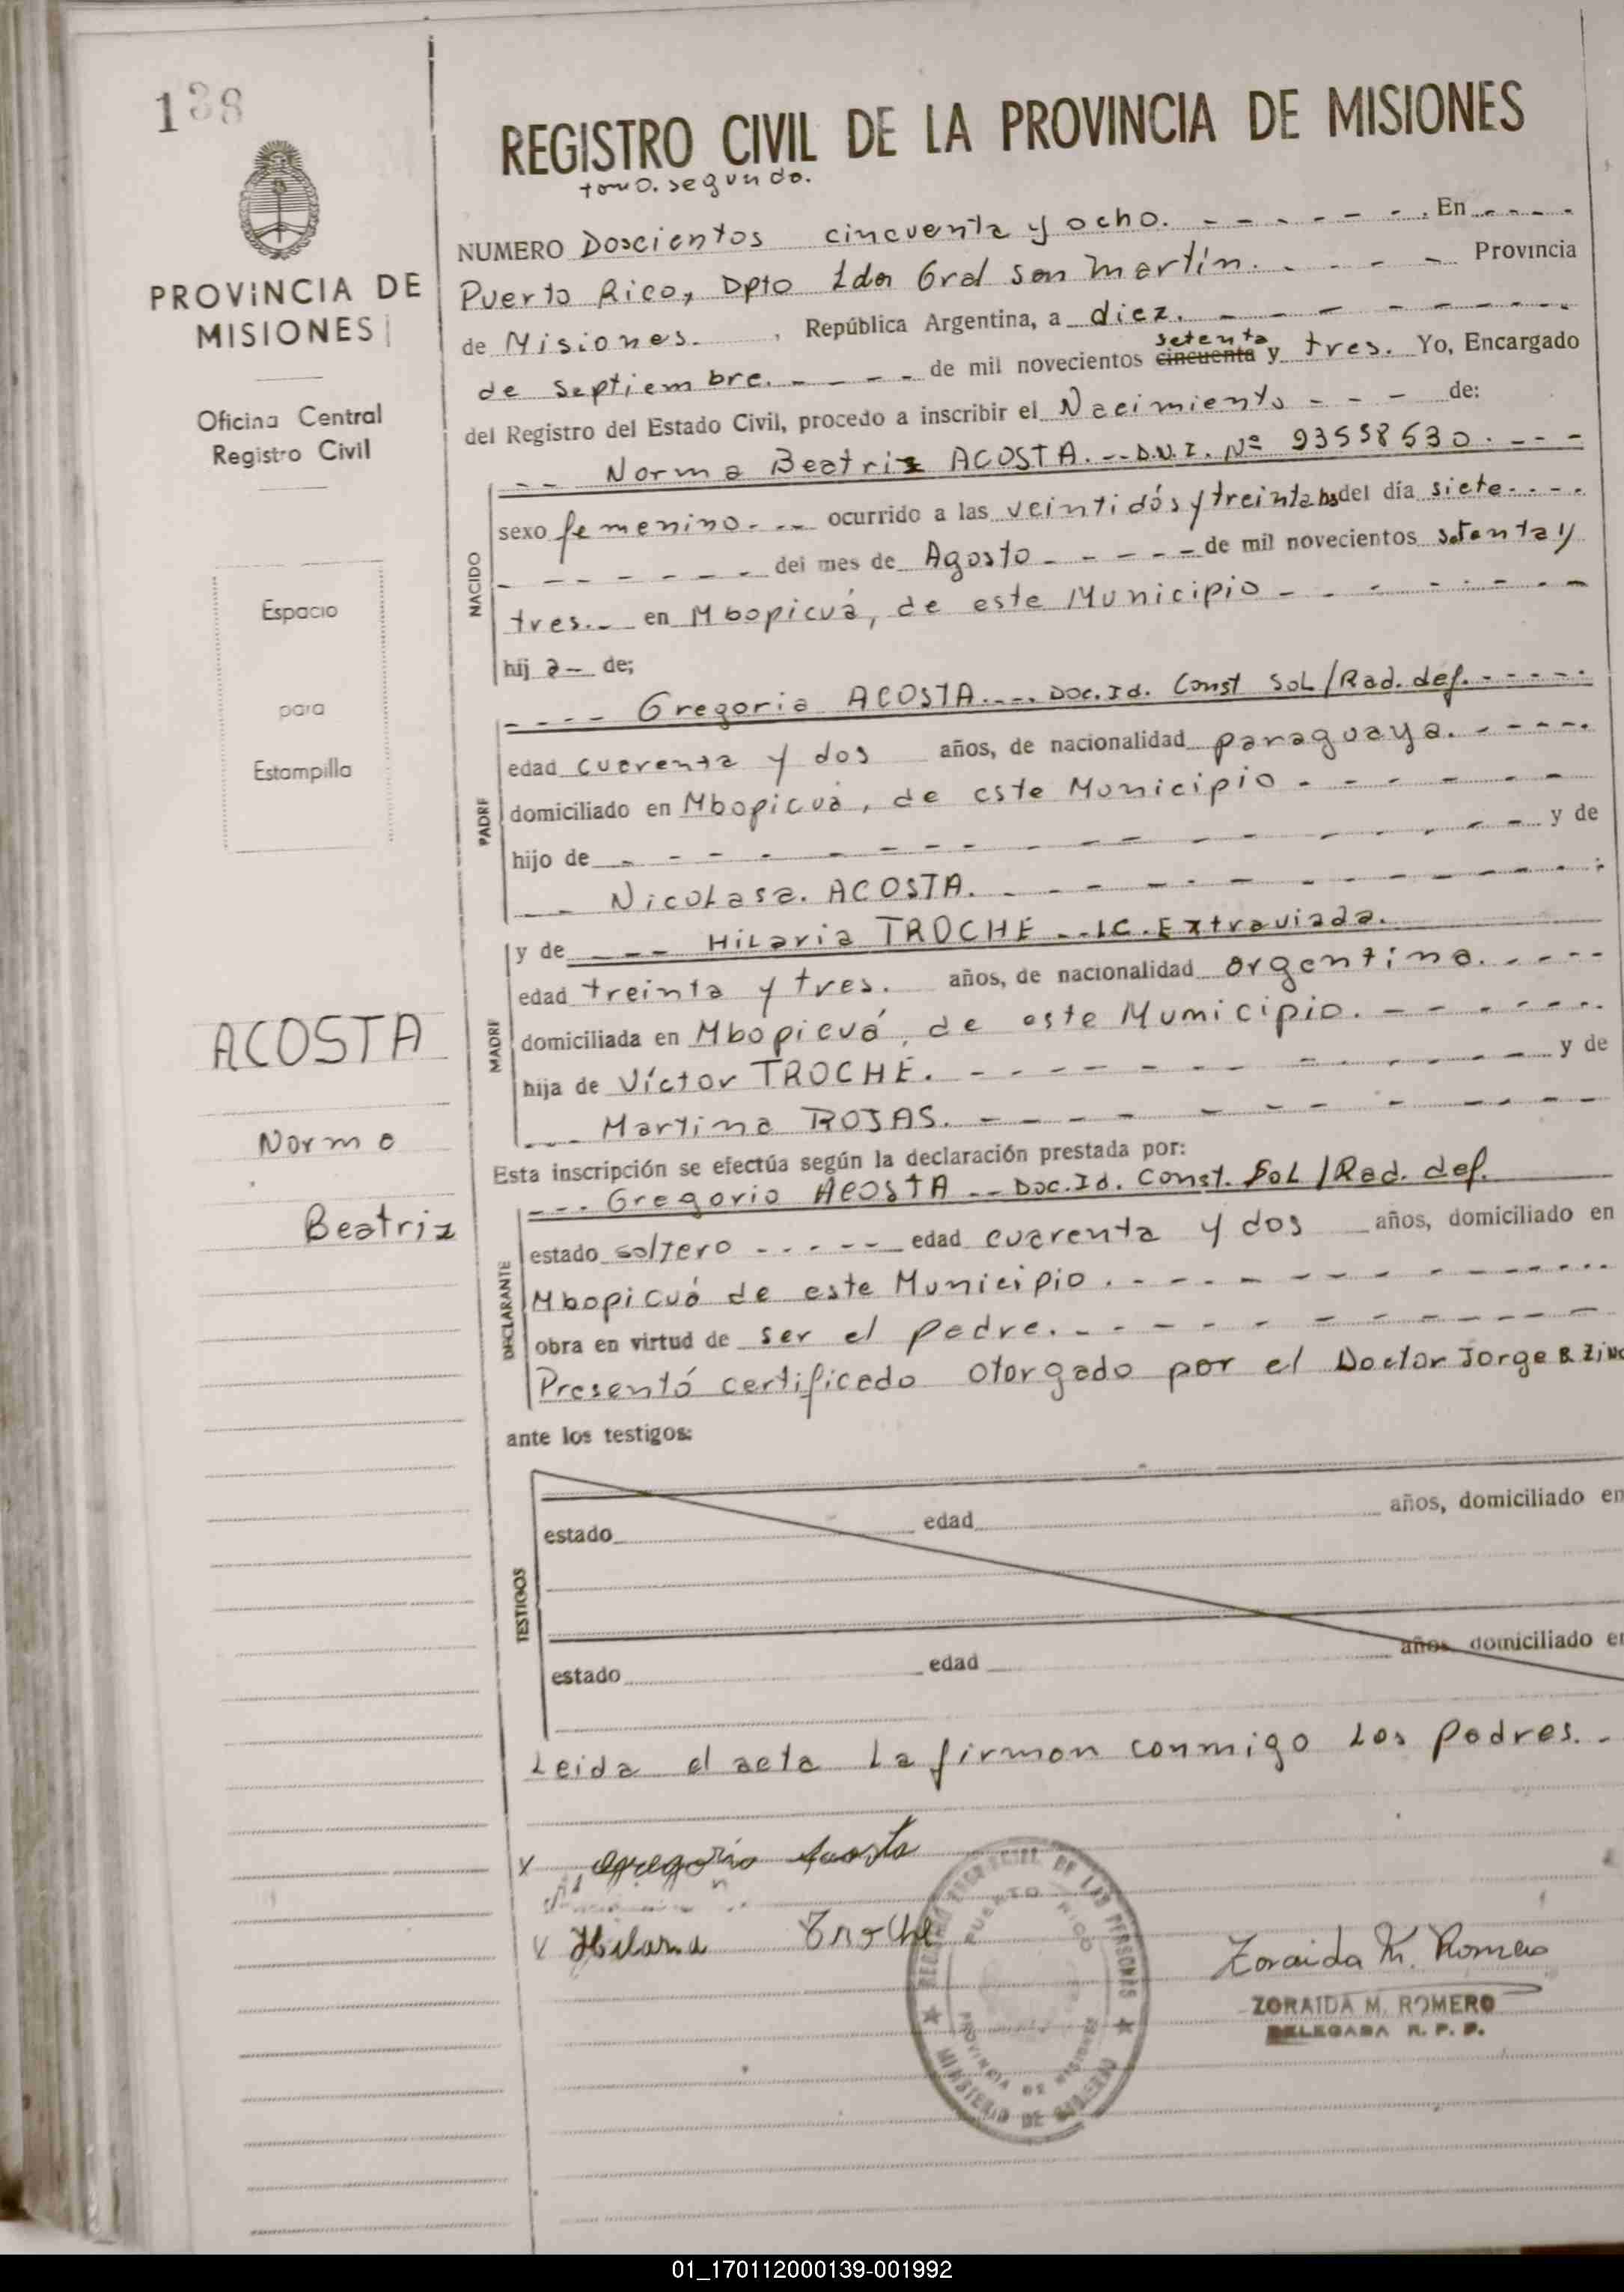 138
REGISTRO CIVIL DE LA PROVINCIA DE MISIONES
tomo. segundo.
PROVINCIA DE
MISIONES
Oficina Central
Registro Civil
Espacio
para
Estampilla
ACOSTA
Norma
Beatriz
NUMERO Doscientos cincuenta y ocho. En
Puerto Rico, Dpto Ldor Gral San Martín. Provincia
de Misiones. , República Argentina, a diez.
setenta
de septiembre. de mil novecientos cincuenta y tres. Yo, Encargado
del Registro del Estado Civil, procedo a inscribir el Nacimiento de:
Norma Beatriz ACOSTA. D.N.I. Nº 93558530.
NACIDO
sexo femenino. ocurrido a las veintidós y treinta hs del día siete.
del mes de Agosto de mil novecientos setenta y
tres. en Mbopicuá, de este Municipio
hij a de;
PADRE
Gregorio ACOSTA. Doc. Id. Const Sol/Rad. def.
edad cuarenta y dos años, de nacionalidad paraguaya.
domiciliado en Mbopicuá, de este Municipio
hijo de y de
Nicolasa. ACOSTA.
MADRE
y de Hilaria TROCHE L.C. Extraviada.
edad treinta y tres. años, de nacionalidad argentina.
domiciliada en Mbopicuá, de este Municipio.
hija de Víctor TROCHE. y de
Martina ROJAS.
Esta inscripción se efectúa según la declaración prestada por:
DECLARANTE
Gregorio ACOSTA Doc. Id. Const. Sol/Rad. def.
estado soltero edad cuarenta y dos años, domiciliado en
Mbopicuá de este Municipio.
obra en virtud de ser el padre.
Presentó certificado otorgado por el Doctor Jorge R
ante los testigos:
TESTIGOS
estado edad años, domiciliado en
estado edad años, domiciliado en
Leida el acta la firman conmigo los padres.
x Gregorio Acosta
Hilaria Troche
REGISTRO PROVINCIAL DE LAS PERSONAS
PUERTO RICO
PROVINCIA DE MISIONES
MINISTERIO DE GOBIERNO
Zoraida M. Romero
ZORAIDA M. ROMERO
DELEGADA R. P. P.
01_170112000139-001992